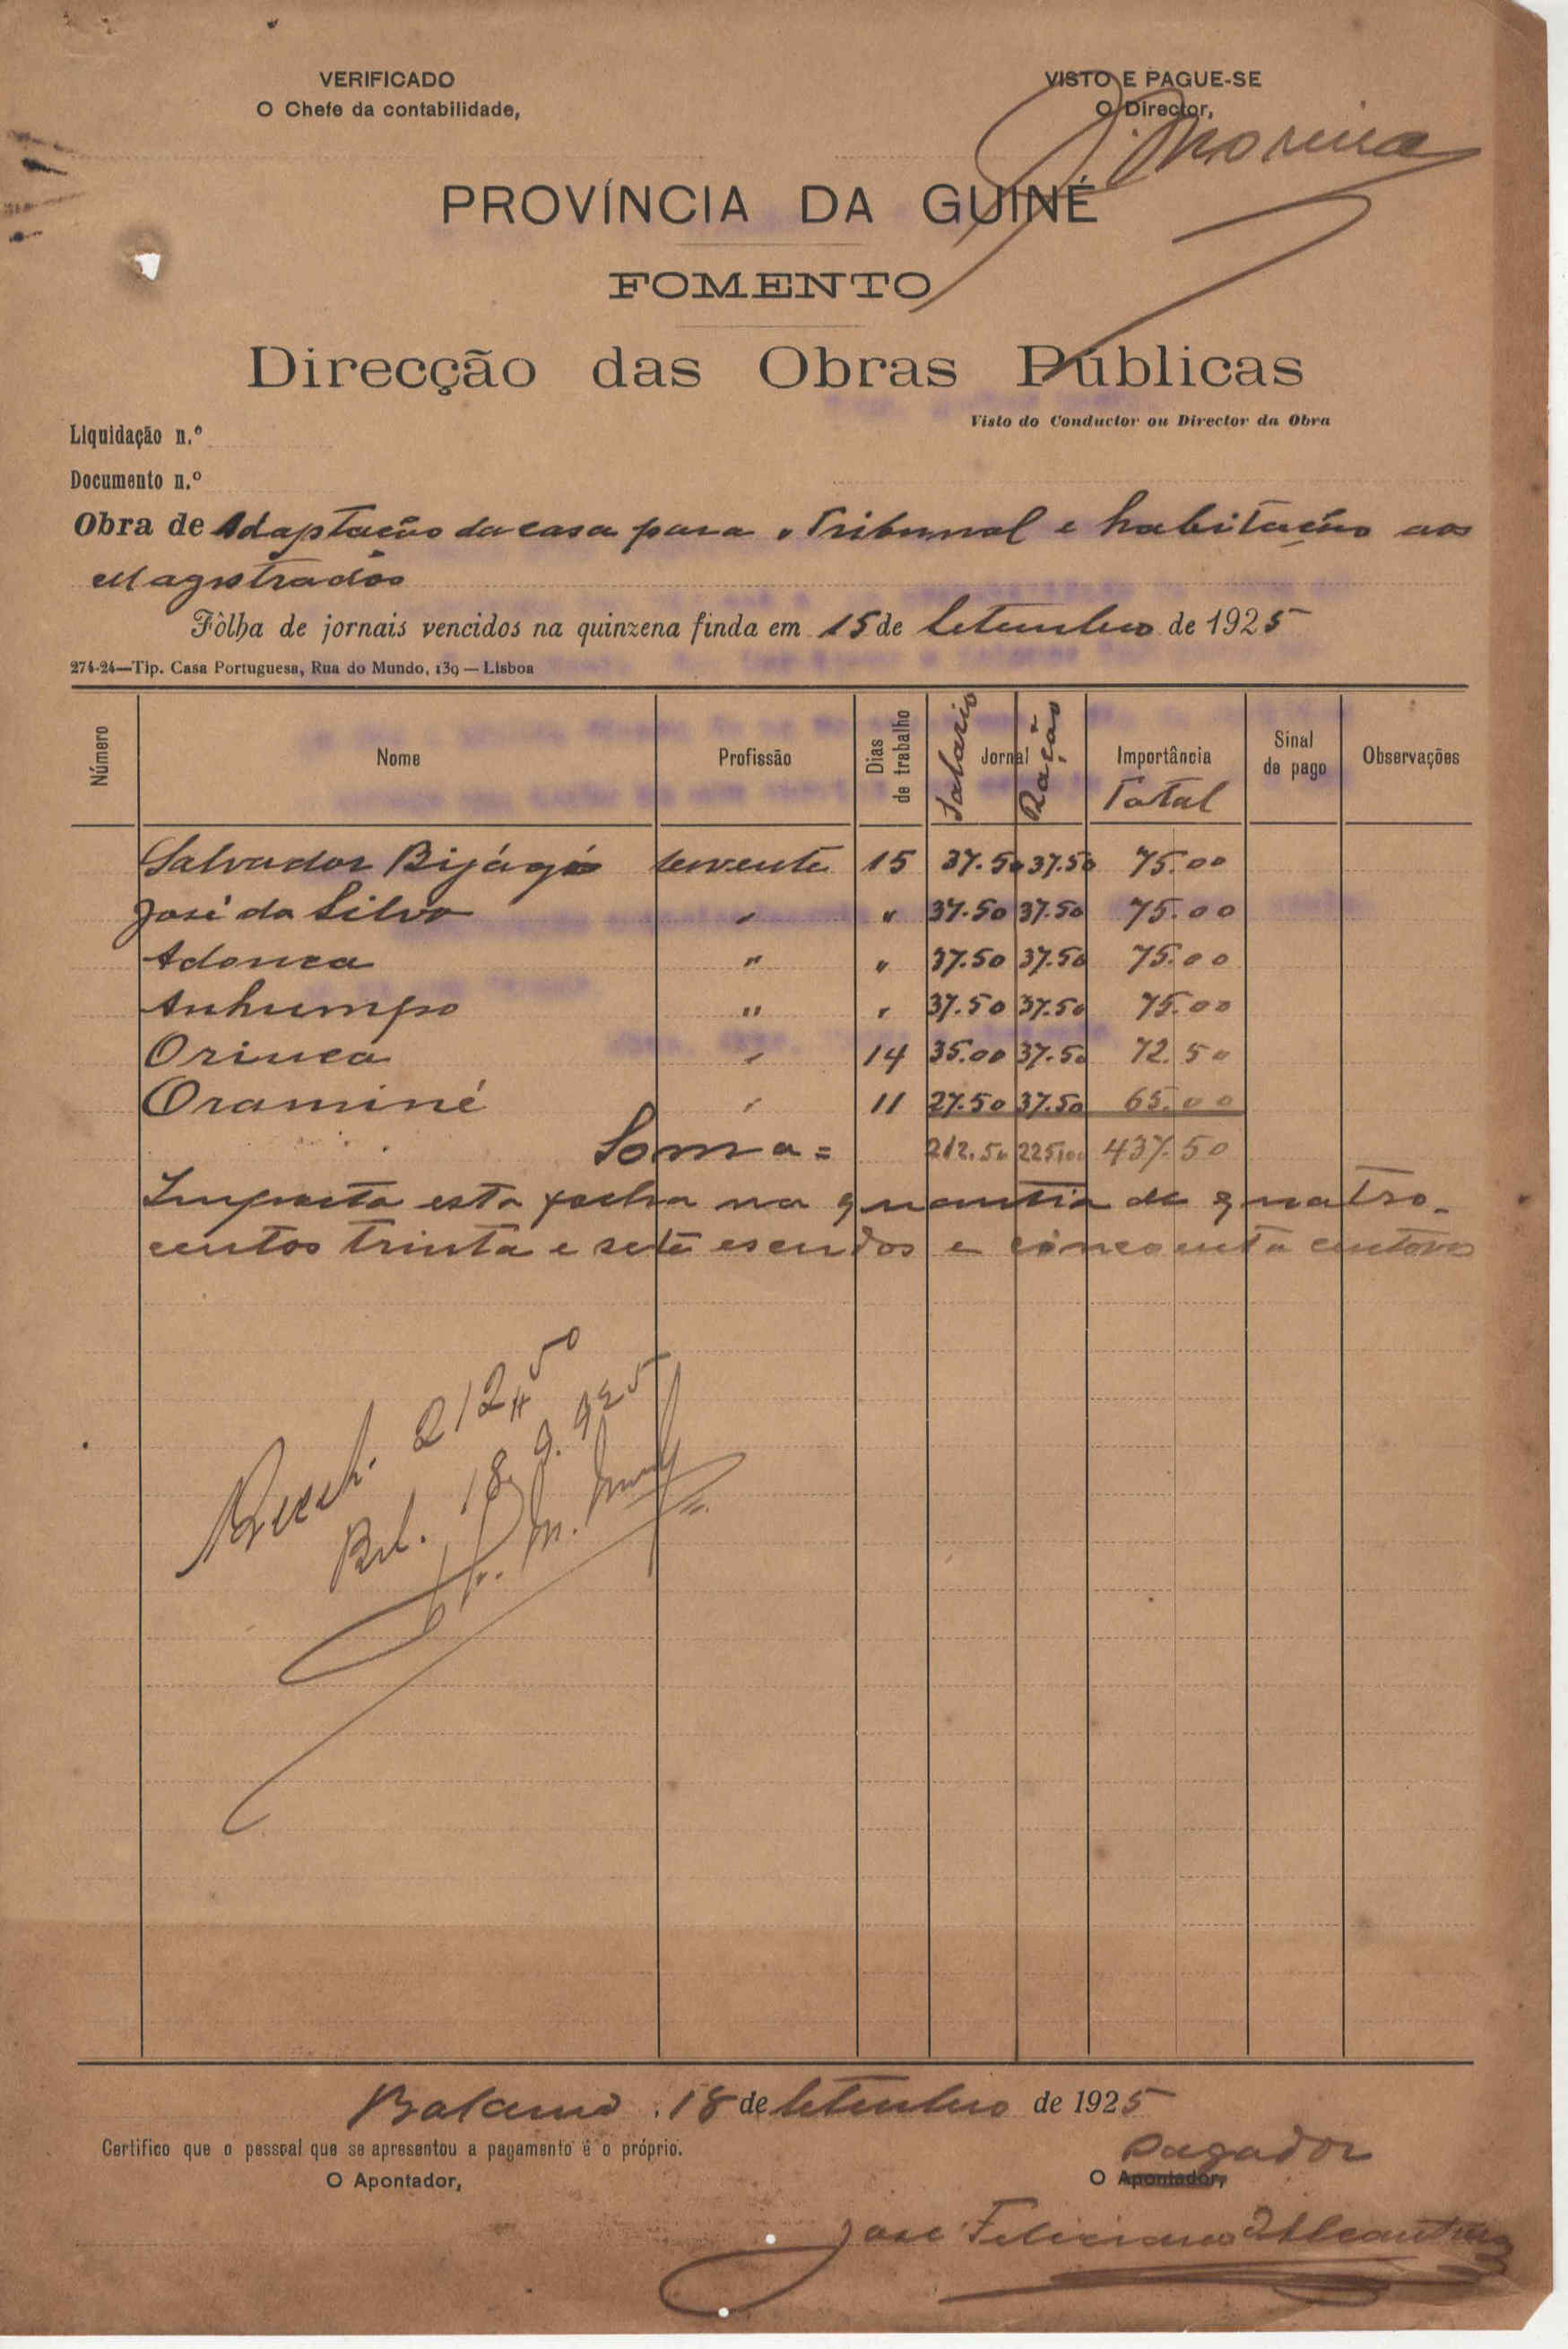 VERIFICADO
O Chefe da contabilidade,
VISTO E PAGUE-SE
O Director,
J. Moreira
PROVÍNCIA DA GUINÉ
FOMENTO
Direcção das Obras Públicas
Visto do Conductor ou Director da Obra
Liquidação n.º
Documento n.º
Obra de Adaptação da casa para o Tribunal e habitação aos
Magistrados
Fôlha de jornais vencidos na quinzena finda em 15 de Setembro de 1925
274-24—Tip. Casa Portuguesa, Rua do Mundo, 139 — Lisboa
Número Nome Profissão Dias de trabalho Jornal Salario Ração Importância Total Sinal de pago Observações
Salvador Bijágó servente 15 37.50 37.50 75.00
José da Silva " " 37.50 37.50 75.00
Adonca " " 37.50 37.50 75.00
Anhumpo " " 37.50 37.50 75.00
Orinca " 14 35.00 37.50 72.50
Oraminé " 11 27.50 37.50 65.00
Soma = 212.50 225.00 437.50
Importa esta folha na quantia de quatro-
centos trinta e sete escudos e cincoenta centavos
Recebi 212$50
Bol. 18.9.925
Bolama, 18 de Setembro de 1925
Certifico que o pessoal que se apresentou a pagamento é o próprio.
O Apontador,
pagador
O Apontador,
José Feliciano d'Alcantara